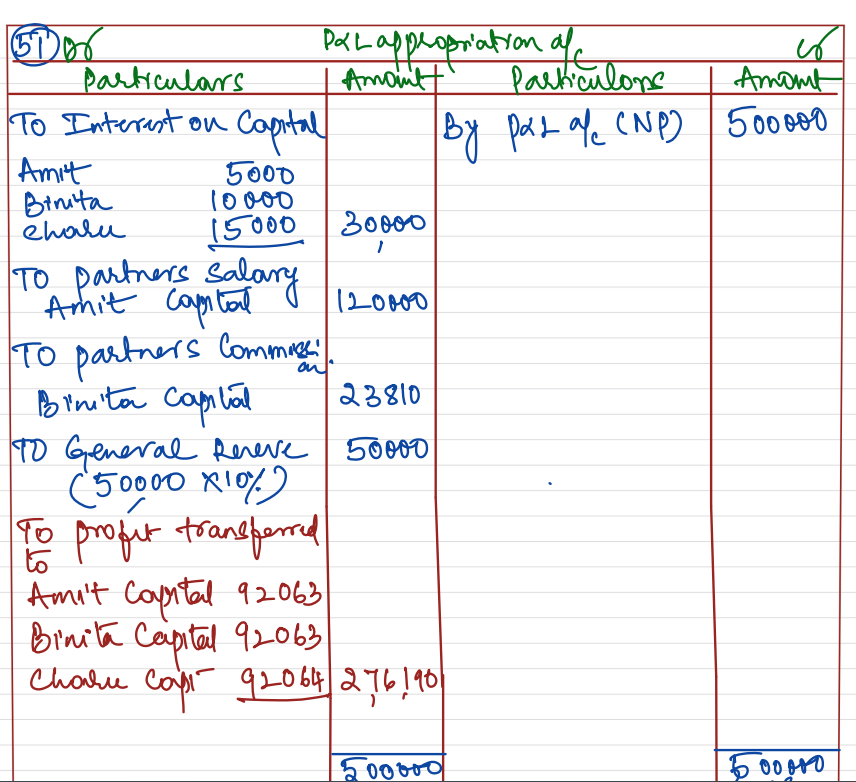 51 Dr P&L appropriation a/c Cr
Particulars Amount Particulars Amount
To Interest on Capital By P&L a/c (NP) 500000
Amit 5000
Binita 10000
Charu 15000 30000
To partners Salary
Amit Capital 120000
To partners Commission
Binita Capital 23810
To General Reserve 50000
(50000 X10%)
To profit transferred
to
Amit Capital 92063
Binita Capital 92063
Charu Capt 92064 276,190
500000 500000